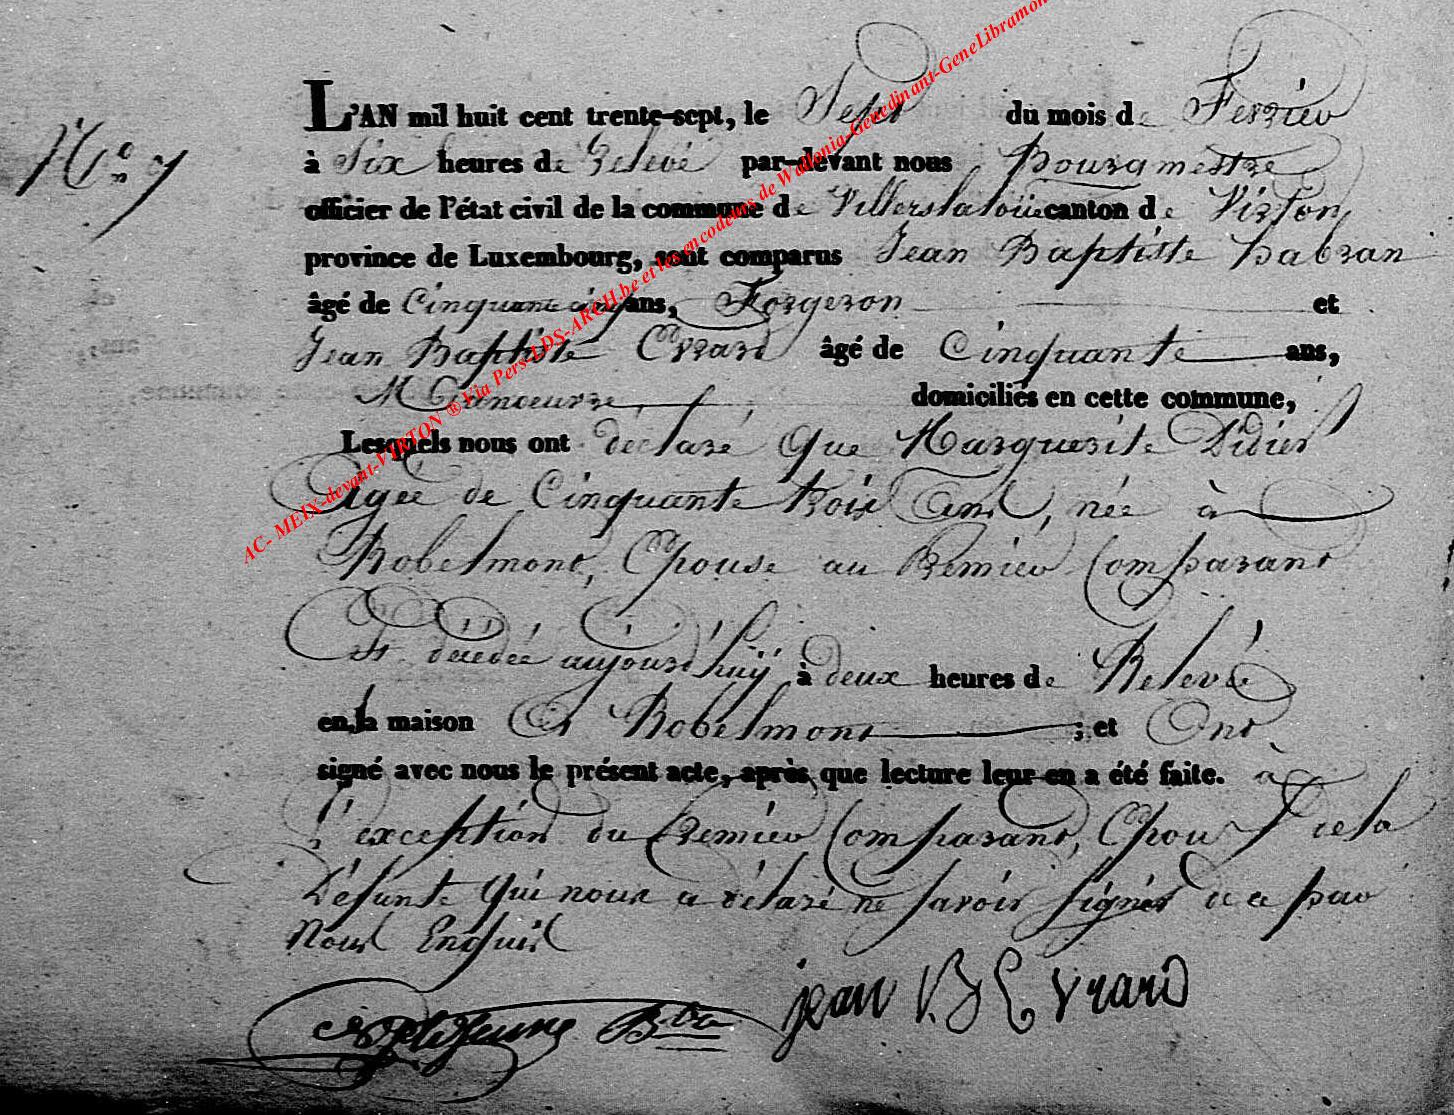 N.º 7
L'AN mil huit cent trente-sept, le Sept du mois de Fevrier
à Six heures de Relevé par-devant nous Bourgmestre
officier de l'état civil de la commune de Villerslaloüe canton de Virton
province de Luxembourg, sont comparus Jean Baptiste habran
âgé de Cinquante cinq ans, Forgeron et
Jean Baptiste Evrard âgé de Cinquante ans,
Manoeuvre, domiciliés en cette commune,
Lesquels nous ont declaré, que Marguerite Didier
Agée de Cinquante trois Ans, née à
Robelmont, Epouse au Premier Comparant
Est décédée aujourd'huÿ à deux heures de Relevée
en la maison Et Robelmont ; et Ont
signé avec nous le présent acte, après que lecture leur en a été faite. a
l'exception du Premier Comparant, Epoux de la
Défunte qui nous a déclaré ne savoir signer de ce par
Nous Enquis
jean B Evrard
AC- MEIX-devant-VIRTON ® Via Pers-LDS-ARCH.be et les encodeurs de Wallonia-Genedinant-GeneLibramon